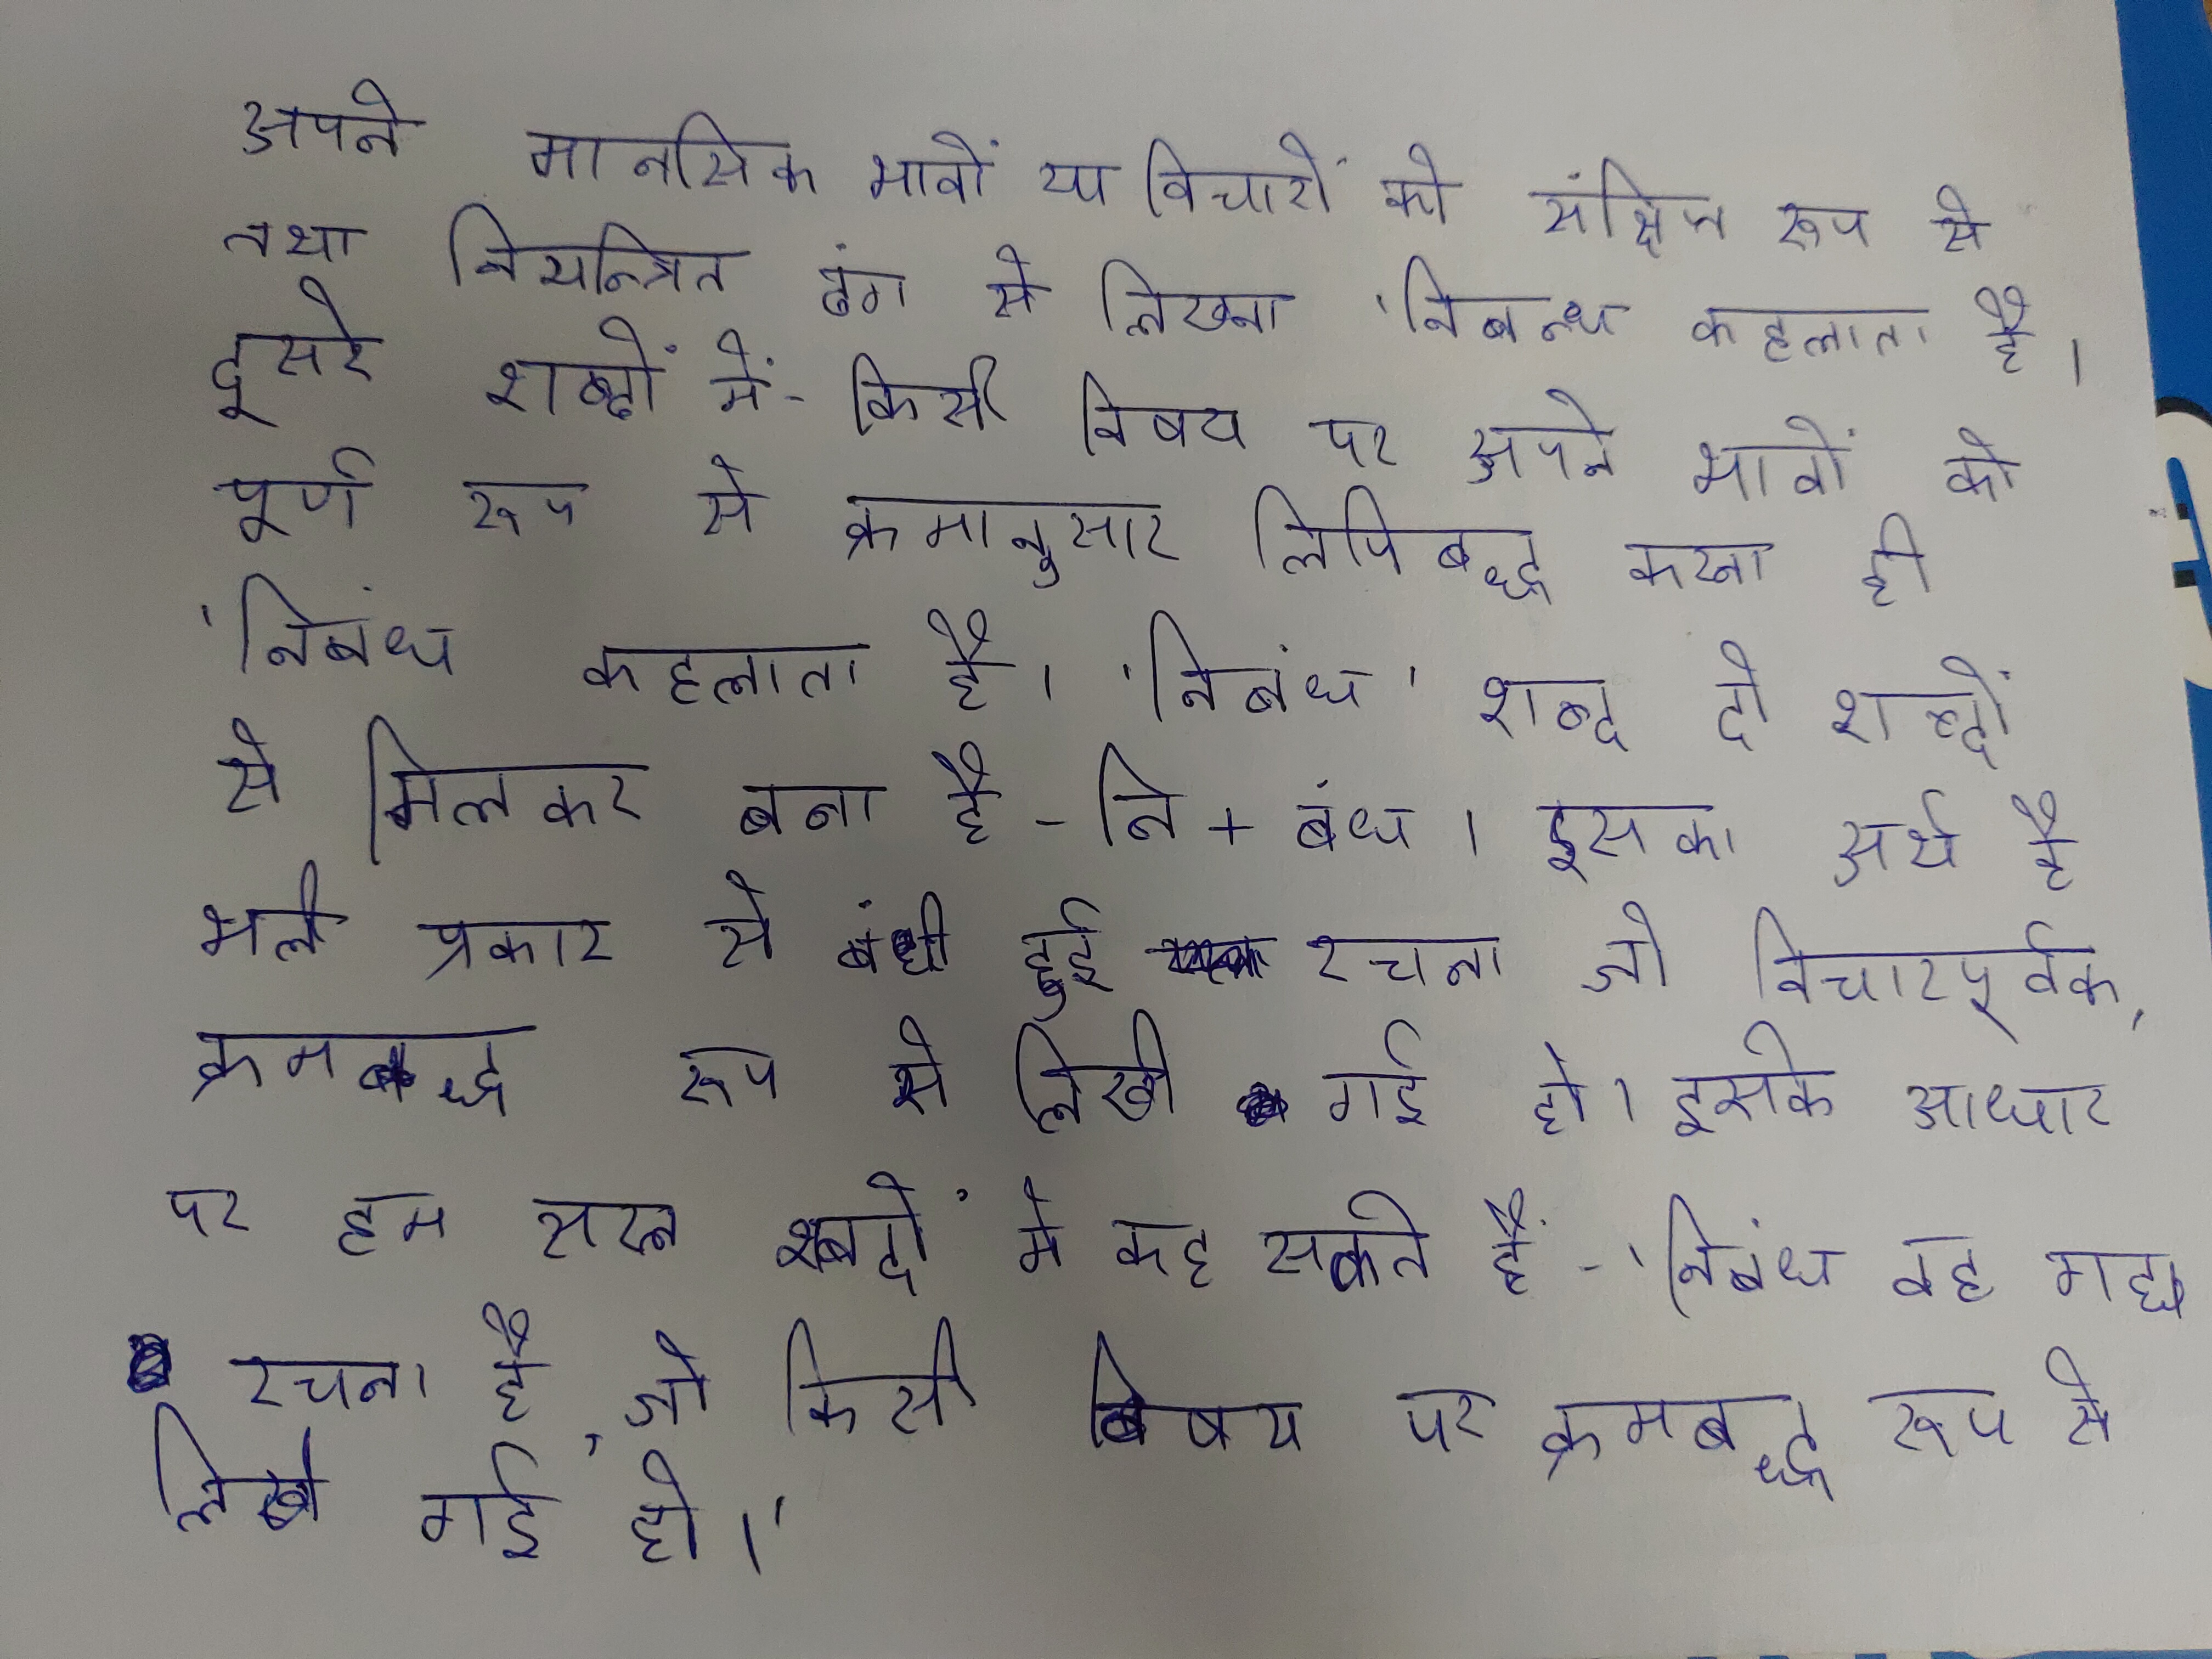 अपने मानसिक भावों या विचारों को संक्षिप्त रूप से
तथा नियन्त्रित ढंग से लिखना 'निबन्ध कहलाता है।
दूसरे शब्दों में- किसी विषय पर अपने भावों को
पूर्ण रूप से क्रमानुसार लिपिबद्ध करना ही
'निबंध कहलाता है। 'निबंध' शब्द दो शब्दों
से मिलकर बना है - नि + बंध। इसका अर्थ है
भली प्रकार से बंधी हुई रचना जो विचारपूर्वक,
क्रमबद्ध रूप से लिखी गई हो। इसके आधार
पर हम सरल शब्दों मे कह सकते हैं - 'निबंध वह गद्य
रचना है, जो किसी विषय पर क्रमबद्ध रूप से
लिखी गई हो।'